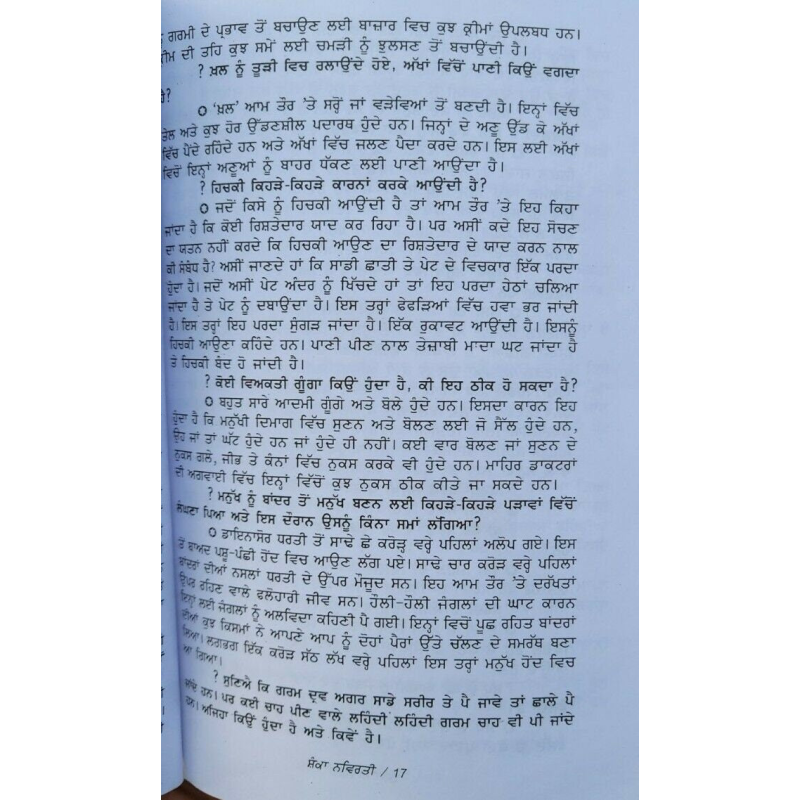 ਗਰਮੀ ਦੇ ਪ੍ਰਭਾਵ ਤੋਂ ਬਚਾਉਣ ਲਈ ਬਾਜ਼ਾਰ ਵਿਚ ਕੁਝ ਕ੍ਰੀਮਾਂ ਉਪਲਬਧ ਹਨ।
ਕ੍ਰੀਮ ਦੀ ਤਹਿ ਕੁਝ ਸਮੇਂ ਲਈ ਚਮੜੀ ਨੂੰ ਝੁਲਸਣ ਤੋਂ ਬਚਾਉਂਦੀ ਹੈ।
? ਖ਼ਲ ਨੂੰ ਤੂੜੀ ਵਿਚ ਰਲਾਉਂਦੇ ਹੋਏ, ਅੱਖਾਂ ਵਿੱਚੋਂ ਪਾਣੀ ਕਿਉਂ ਵਗਦਾ
ਹੈ?
੦ 'ਖ਼ਲ' ਆਮ ਤੌਰ 'ਤੇ ਸਰ੍ਹੋਂ ਜਾਂ ਵੜੇਵਿਆਂ ਤੋਂ ਬਣਦੀ ਹੈ। ਇਨ੍ਹਾਂ ਵਿੱਚ
ਤੇਲ ਅਤੇ ਕੁਝ ਹੋਰ ਉੱਡਣਸ਼ੀਲ ਪਦਾਰਥ ਹੁੰਦੇ ਹਨ। ਜਿਨ੍ਹਾਂ ਦੇ ਅਣੂ ਉੱਡ ਕੇ ਅੱਖਾਂ
ਵਿੱਚ ਪੈਂਦੇ ਰਹਿੰਦੇ ਹਨ ਅਤੇ ਅੱਖਾਂ ਵਿੱਚ ਜਲਣ ਪੈਦਾ ਕਰਦੇ ਹਨ। ਇਸ ਲਈ ਅੱਖਾਂ
ਵਿਚੋਂ ਇਨ੍ਹਾਂ ਅਣੂਆਂ ਨੂੰ ਬਾਹਰ ਧੱਕਣ ਲਈ ਪਾਣੀ ਆਉਂਦਾ ਹੈ।
? ਹਿਚਕੀ ਕਿਹੜੇ-ਕਿਹੜੇ ਕਾਰਨਾਂ ਕਰਕੇ ਆਉਂਦੀ ਹੈ?
੦ ਜਦੋਂ ਕਿਸੇ ਨੂੰ ਹਿਚਕੀ ਆਉਂਦੀ ਹੈ ਤਾਂ ਆਮ ਤੌਰ 'ਤੇ ਇਹ ਕਿਹਾ
ਜਾਂਦਾ ਹੈ ਕਿ ਕੋਈ ਰਿਸ਼ਤੇਦਾਰ ਯਾਦ ਕਰ ਰਿਹਾ ਹੈ। ਪਰ ਅਸੀਂ ਕਦੇ ਇਹ ਸੋਚਣ
ਦਾ ਯਤਨ ਨਹੀਂ ਕਰਦੇ ਕਿ ਹਿਚਕੀ ਆਉਣ ਦਾ ਰਿਸ਼ਤੇਦਾਰ ਦੇ ਯਾਦ ਕਰਨ ਨਾਲ
ਕੀ ਸੰਬੰਧ ਹੈ? ਅਸੀਂ ਜਾਣਦੇ ਹਾਂ ਕਿ ਸਾਡੀ ਛਾਤੀ ਤੇ ਪੇਟ ਦੇ ਵਿਚਕਾਰ ਇੱਕ ਪਰਦਾ
ਹੁੰਦਾ ਹੈ। ਜਦੋਂ ਅਸੀਂ ਪੇਟ ਅੰਦਰ ਨੂੰ ਖਿੱਚਦੇ ਹਾਂ ਤਾਂ ਇਹ ਪਰਦਾ ਹੇਠਾਂ ਚਲਿਆ
ਜਾਂਦਾ ਹੈ ਤੇ ਪੇਟ ਨੂੰ ਦਬਾਉਂਦਾ ਹੈ। ਇਸ ਤਰ੍ਹਾਂ ਫੇਫੜਿਆਂ ਵਿੱਚ ਹਵਾ ਭਰ ਜਾਂਦੀ
ਹੈ। ਇਸ ਤਰ੍ਹਾਂ ਇਹ ਪਰਦਾ ਸੁੰਗੜ ਜਾਂਦਾ ਹੈ। ਇੱਕ ਰੁਕਾਵਟ ਆਉਂਦੀ ਹੈ। ਇਸਨੂੰ
ਹਿਚਕੀ ਆਉਣਾ ਕਹਿੰਦੇ ਹਨ। ਪਾਣੀ ਪੀਣ ਨਾਲ ਤੇਜ਼ਾਬੀ ਮਾਦਾ ਘਟ ਜਾਂਦਾ ਹੈ
ਤੇ ਹਿਚਕੀ ਬੰਦ ਹੋ ਜਾਂਦੀ ਹੈ।
? ਕੋਈ ਵਿਅਕਤੀ ਗੂੰਗਾ ਕਿਉਂ ਹੁੰਦਾ ਹੈ, ਕੀ ਇਹ ਠੀਕ ਹੋ ਸਕਦਾ ਹੈ?
੦ ਬਹੁਤ ਸਾਰੇ ਆਦਮੀ ਗੂੰਗੇ ਅਤੇ ਬੋਲੇ ਹੁੰਦੇ ਹਨ। ਇਸਦਾ ਕਾਰਨ ਇਹ
ਹੁੰਦਾ ਹੈ ਕਿ ਮਨੁੱਖੀ ਦਿਮਾਗ ਵਿੱਚ ਸੁਣਨ ਅਤੇ ਬੋਲਣ ਲਈ ਜੋ ਸੈੱਲ ਹੁੰਦੇ ਹਨ,
ਉਹ ਜਾਂ ਤਾਂ ਘੱਟ ਹੁੰਦੇ ਹਨ ਜਾਂ ਹੁੰਦੇ ਹੀ ਨਹੀਂ। ਕਈ ਵਾਰ ਬੋਲਣ ਜਾਂ ਸੁਣਨ ਦੇ
ਨੁਕਸ ਗਲੇ, ਜੀਭ ਤੇ ਕੰਨਾਂ ਵਿੱਚ ਨੁਕਸ ਕਰਕੇ ਵੀ ਹੁੰਦੇ ਹਨ। ਮਾਹਿਰ ਡਾਕਟਰਾਂ
ਦੀ ਅਗਵਾਈ ਵਿੱਚ ਇਨ੍ਹਾਂ ਵਿੱਚੋਂ ਕੁਝ ਨੁਕਸ ਠੀਕ ਕੀਤੇ ਜਾ ਸਕਦੇ ਹਨ।
? ਮਨੁੱਖ ਨੂੰ ਬਾਂਦਰ ਤੋਂ ਮਨੁੱਖ ਬਣਨ ਲਈ ਕਿਹੜੇ-ਕਿਹੜੇ ਪੜਾਵਾਂ ਵਿੱਚੋਂ
ਲੰਘਣਾ ਪਿਆ ਅਤੇ ਇਸ ਦੌਰਾਨ ਉਸਨੂੰ ਕਿੰਨਾ ਸਮਾਂ ਲੱਗਿਆ?
੦ ਡਾਇਨਾਸੋਰ ਧਰਤੀ ਤੋਂ ਸਾਢੇ ਛੇ ਕਰੋੜ੍ਹ ਵਰ੍ਹੇ ਪਹਿਲਾਂ ਅਲੋਪ ਗਏ। ਇਸ
ਤੋਂ ਬਾਅਦ ਪਸ਼ੂ-ਪੰਛੀ ਹੋਂਦ ਵਿਚ ਆਉਣ ਲੱਗ ਪਏ। ਸਾਢੇ ਚਾਰ ਕਰੋੜ ਵਰ੍ਹੇ ਪਹਿਲਾਂ
ਬਾਂਦਰਾਂ ਦੀਆਂ ਨਸਲਾਂ ਧਰਤੀ ਦੇ ਉੱਪਰ ਮੌਜੂਦ ਸਨ। ਇਹ ਆਮ ਤੌਰ 'ਤੇ ਦਰੱਖਤਾਂ
ਉਪਰ ਰਹਿਣ ਵਾਲੇ ਫਲੋਹਾਰੀ ਜੀਵ ਸਨ। ਹੌਲੀ-ਹੌਲੀ ਜੰਗਲਾਂ ਦੀ ਘਾਟ ਕਾਰਨ
ਇਨ੍ਹਾਂ ਲਈ ਜੰਗਲਾਂ ਨੂੰ ਅਲਵਿਦਾ ਕਹਿਣੀ ਪੈ ਗਈ। ਇਨ੍ਹਾਂ ਵਿਚੋਂ ਪੂਛ ਰਹਿਤ ਬਾਂਦਰਾਂ
ਦੀਆਂ ਕੁਝ ਕਿਸਮਾਂ ਨੇ ਆਪਣੇ ਆਪ ਨੂੰ ਦੋਹਾਂ ਪੈਰਾਂ ਉੱਤੇ ਚੱਲਣ ਦੇ ਸਮਰੱਥ ਬਣਾ
ਲਿਆ। ਲਗਭਗ ਇੱਕ ਕਰੋੜ ਸੱਠ ਲੱਖ ਵਰ੍ਹੇ ਪਹਿਲਾਂ ਇਸ ਤਰ੍ਹਾਂ ਮਨੁੱਖ ਹੋਂਦ ਵਿਚ
ਆ ਗਿਆ।
? ਸੁਣਿਐ ਕਿ ਗਰਮ ਦ੍ਰਵ ਅਗਰ ਸਾਡੇ ਸਰੀਰ ਤੇ ਪੈ ਜਾਵੇ ਤਾਂ ਛਾਲੇ ਪੈ
ਜਾਂਦੇ ਹਨ। ਪਰ ਕਈ ਚਾਹ ਪੀਣ ਵਾਲੇ ਲਹਿੰਦੀ ਲਹਿੰਦੀ ਗਰਮ ਚਾਹ ਵੀ ਪੀ ਜਾਂਦੇ
ਹਨ। ਅਜਿਹਾ ਕਿਉਂ ਹੁੰਦਾ ਹੈ ਅਤੇ ਕਿਵੇਂ ਹੈ।
ਸ਼ੰਕਾ ਨਵਿਰਤੀ / 17